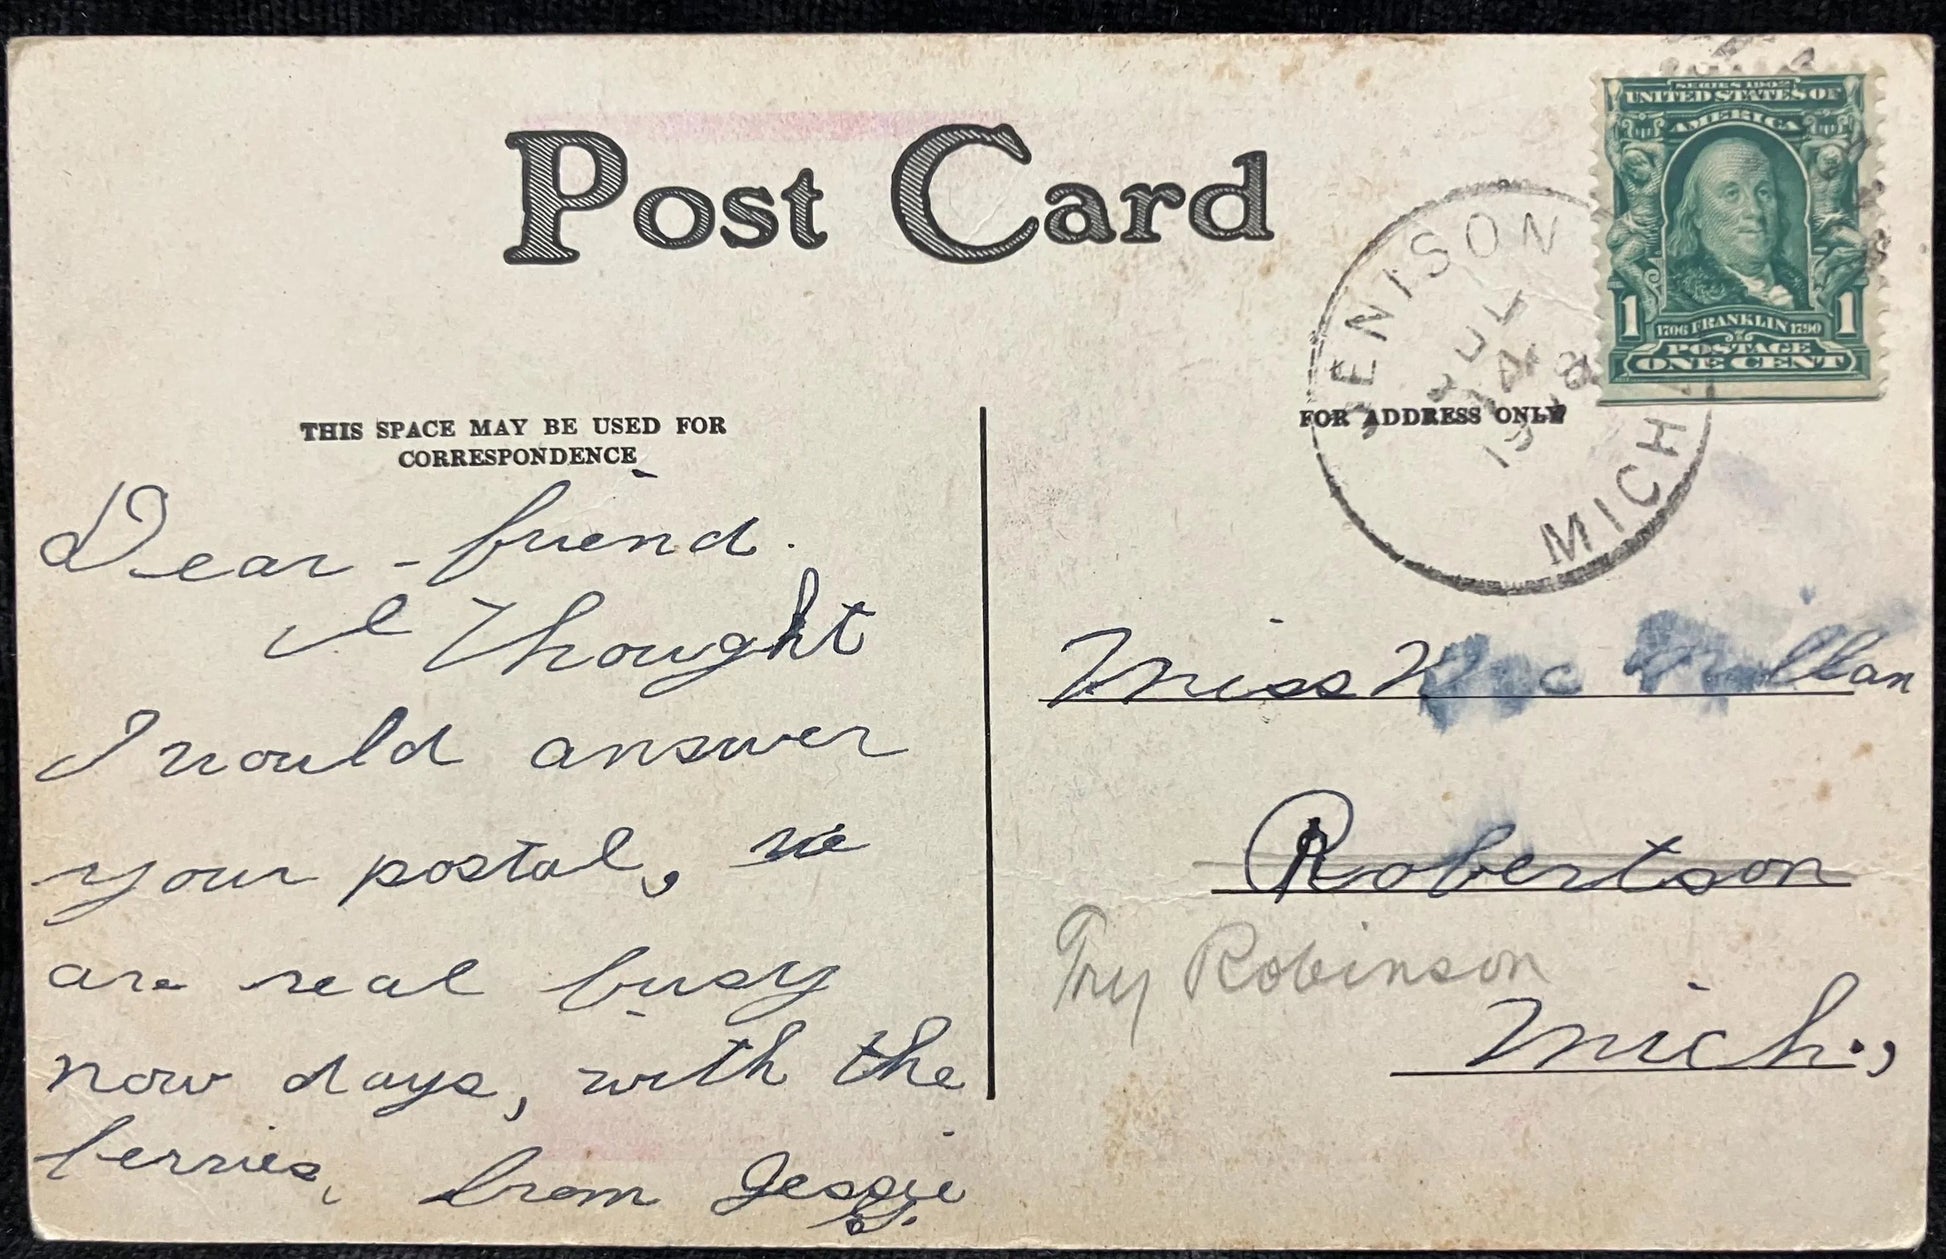 Post Card
SERIES 1902
UNITED STATES OF
AMERICA
1 1706 FRANKLIN 1790 1
POSTAGE
ONE CENT
JENISON
JUL
14
MICH
THIS SPACE MAY BE USED FOR
CORRESPONDENCE
FOR ADDRESS ONLY
Dear - friend.
I thought
I would answer
your postal, we
are real busy
now days, with the
berries, from Jessie
Miss Mac Millan
Robertson
Try Robinson
Mich.,